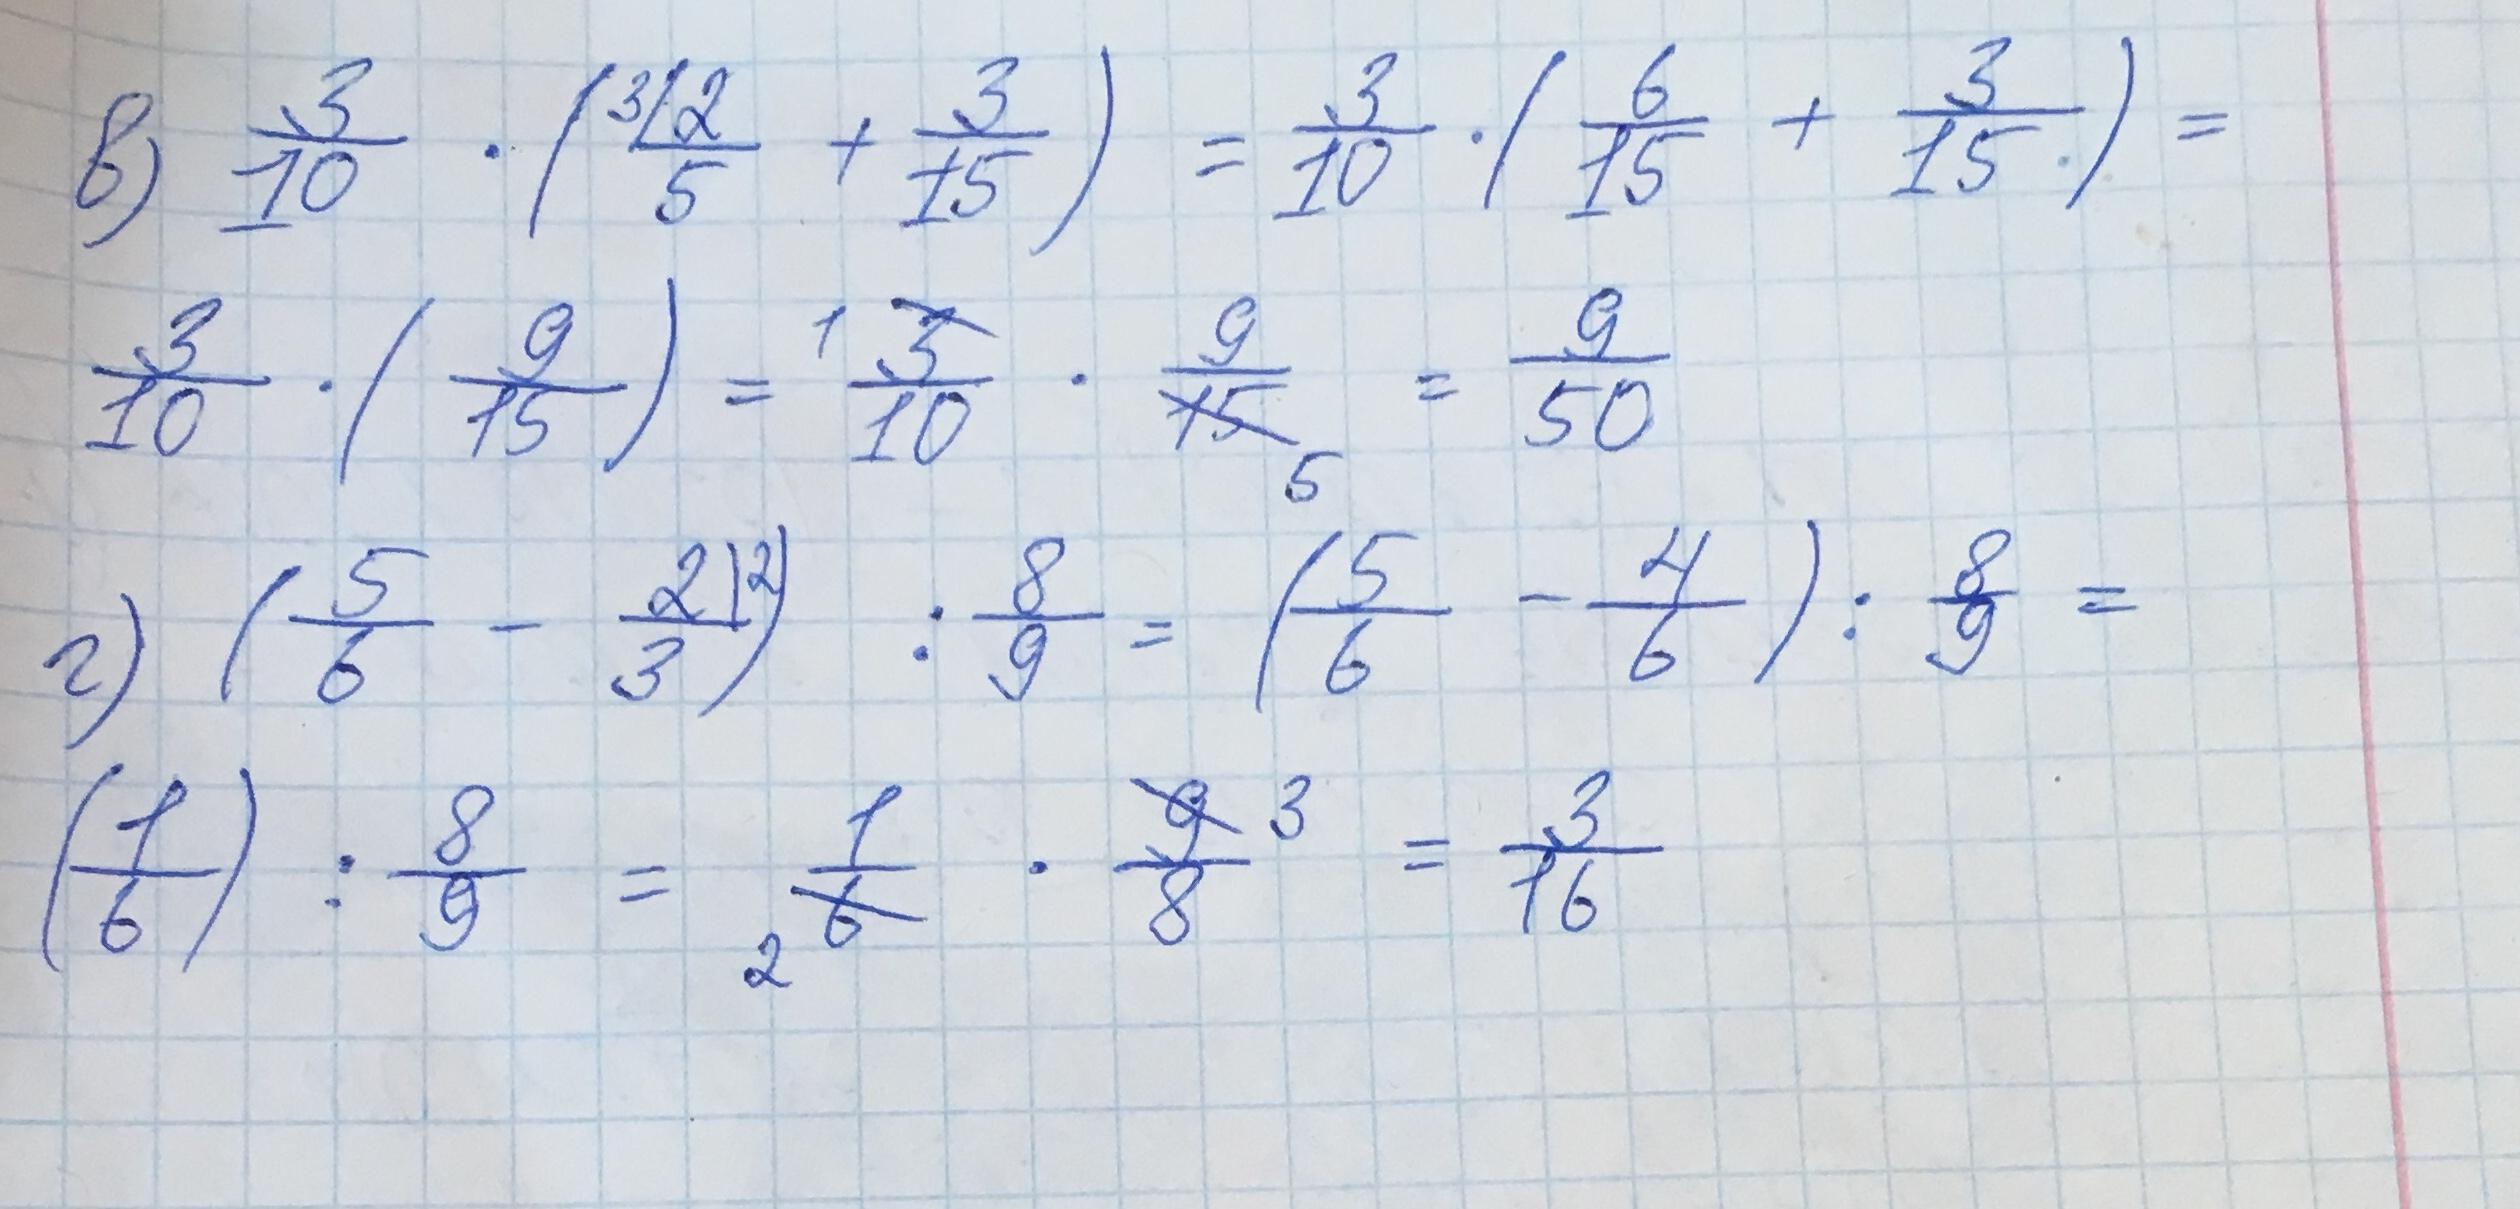 в) 3/10 · (³⁄2/5 + 3/15) = 3/10 · (6/15 + 3/15) =
3/10 · (9/15) = ¹ 3/10 · 9/15 ₅ = 9/50
г) (5/6 - 2/3 |²) : 8/9 = (5/6 - 4/6) : 8/9 =
(1/6) : 8/9 = ₂ 1/6 · 9/8 ³ = 3/16